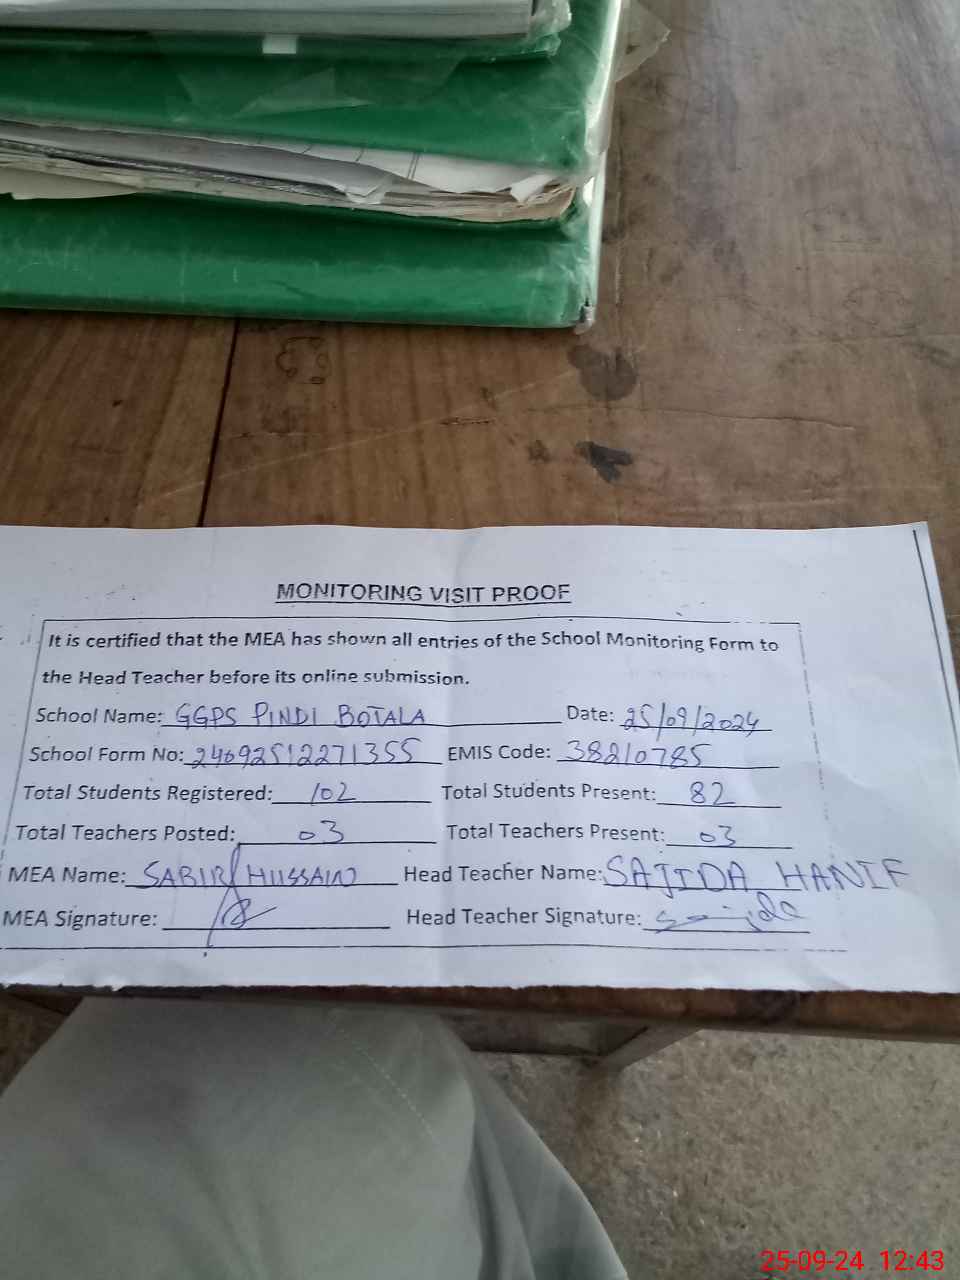 MONITORING VISIT PROOF
It is certified that the MEA has shown all entries of the School Monitoring Form to
the Head Teacher before its online submission.
School Name: GGPS PINDI BOTALA Date: 25/09/2024
School Form No: 24092512271355 EMIS Code: 38210785
Total Students Registered: 102 Total Students Present: 82
Total Teachers Posted: 03 Total Teachers Present: 03
MEA Name: SABIR HUSSAIN Head Teacher Name: SAJIDA HANIF
MEA Signature: Head Teacher Signature: Sajida
25-09-24 12:43